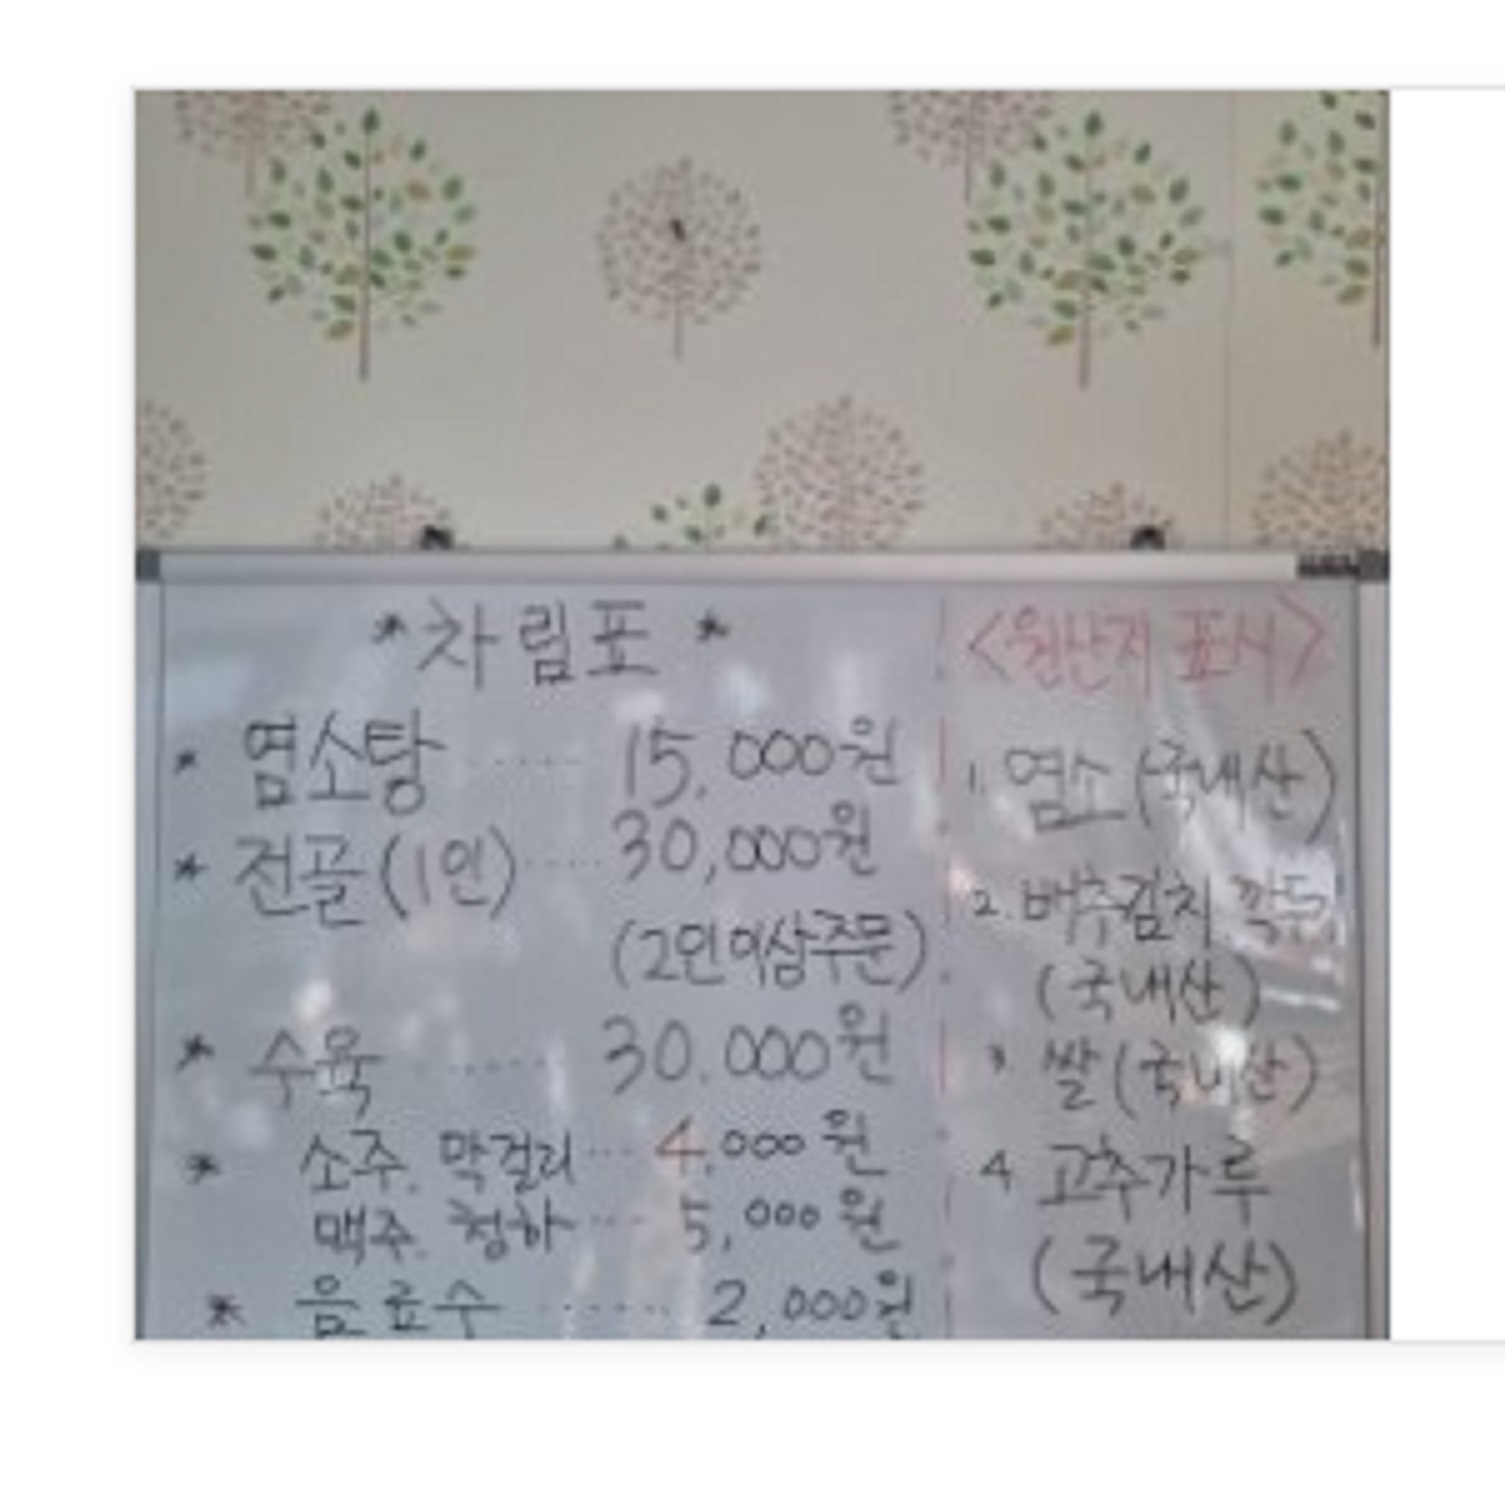 *차림표*
* 염소탕 ····· 15,000원
* 전골(1인) ···· 30,000원
(2인이상주문)
* 수육 ······ 30.000원
* 소주. 막걸리 ··· 4,000원
맥주. 청하 ··· 5,000원
* 음료수 ······ 2,000원
<원산지 표시>
1. 염소(국내산)
2. 배추김치 깍두
(국내산)
3. 쌀(국내산)
4 고추가루
(국내산)